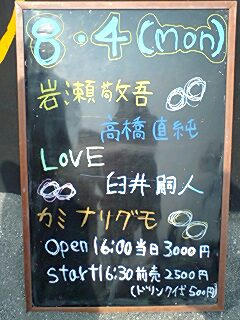 8・4(mon)
岩瀬敬吾
高橋直純
LOVE
臼井嗣人
カミナリグモ
Open 16:00 当日3000円
Start 16:30 前売2500円
(ドリンク代500円)